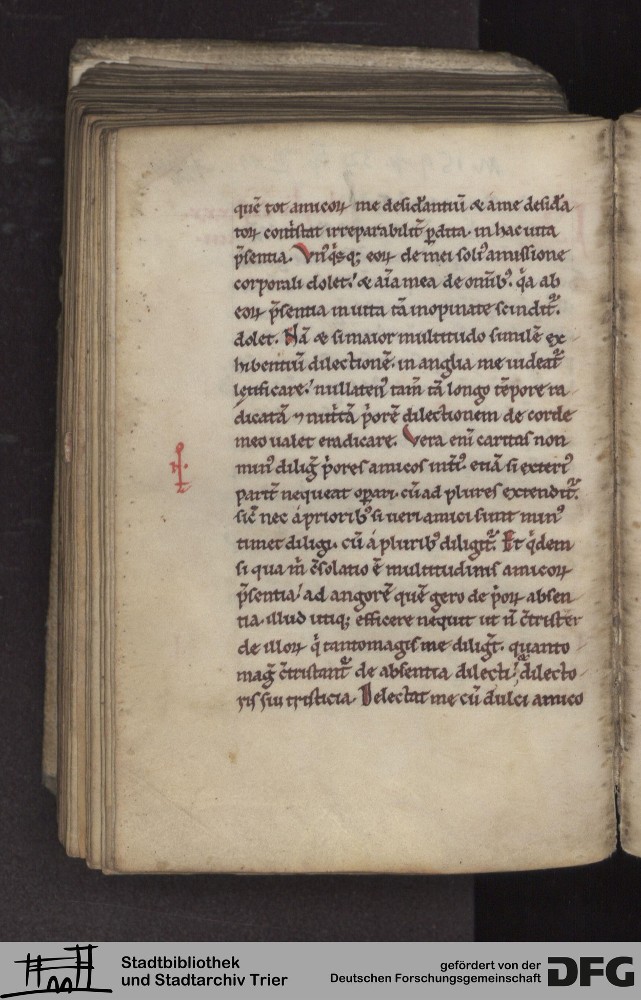 quē tot amicoꝝ me desid̓antiū & a me desid̓a
toꝝ cont̓stat irreparabilit̓ ꝑdita. in hac uita
p̄sentia. Vn̓ q̓sq; eoꝝ de mei soli᷒ amissione
corporali dolet.' & aīa mea de omīb᷒. q̓a ab
eoꝝ p̄sentia in uita tā inopinate scindit᷑.
dolet. Nā & si maior multitudo similē ex
hibentiū dilectionē. in anglia me uideat᷑
letificare.' nullaten᷒ tam̄ tā longo tēpore ra
dicatā ⁊ nut̓tā p̓orē dilectionem de corde
meo ualet eradicare. Vera enī caritas non
min᷒ diliḡ p̓ores amicos int̓i᷒. etiā si exteri᷒
parit̓ nequeat oꝑari. cū ad plures extendit᷑.
sic̄ nec á priorib᷒ si ueri amici sunt min᷒
timet diligi. cū á plurib᷒ diligit᷑. Et q̓dem
si qua m̓ c̄solatio ē multitudinis amicoꝝ
p̄sentia.' ad angorē quē gero de p̓oꝝ absen
tia. illud utiq; efficere nequit ut n̄ c̄trister
de illoꝝ q̓ tanto magis me diliḡt. quanto
mag̓ c̄tristant᷑ de absentia dilecti.' dilecto
ris sui tristicia. Delectat me cū dulci amico
Stadtbibliothek
und Stadtarchiv Trier
gefördert von der
Deutschen Forschungsgemeinschaft
DFG